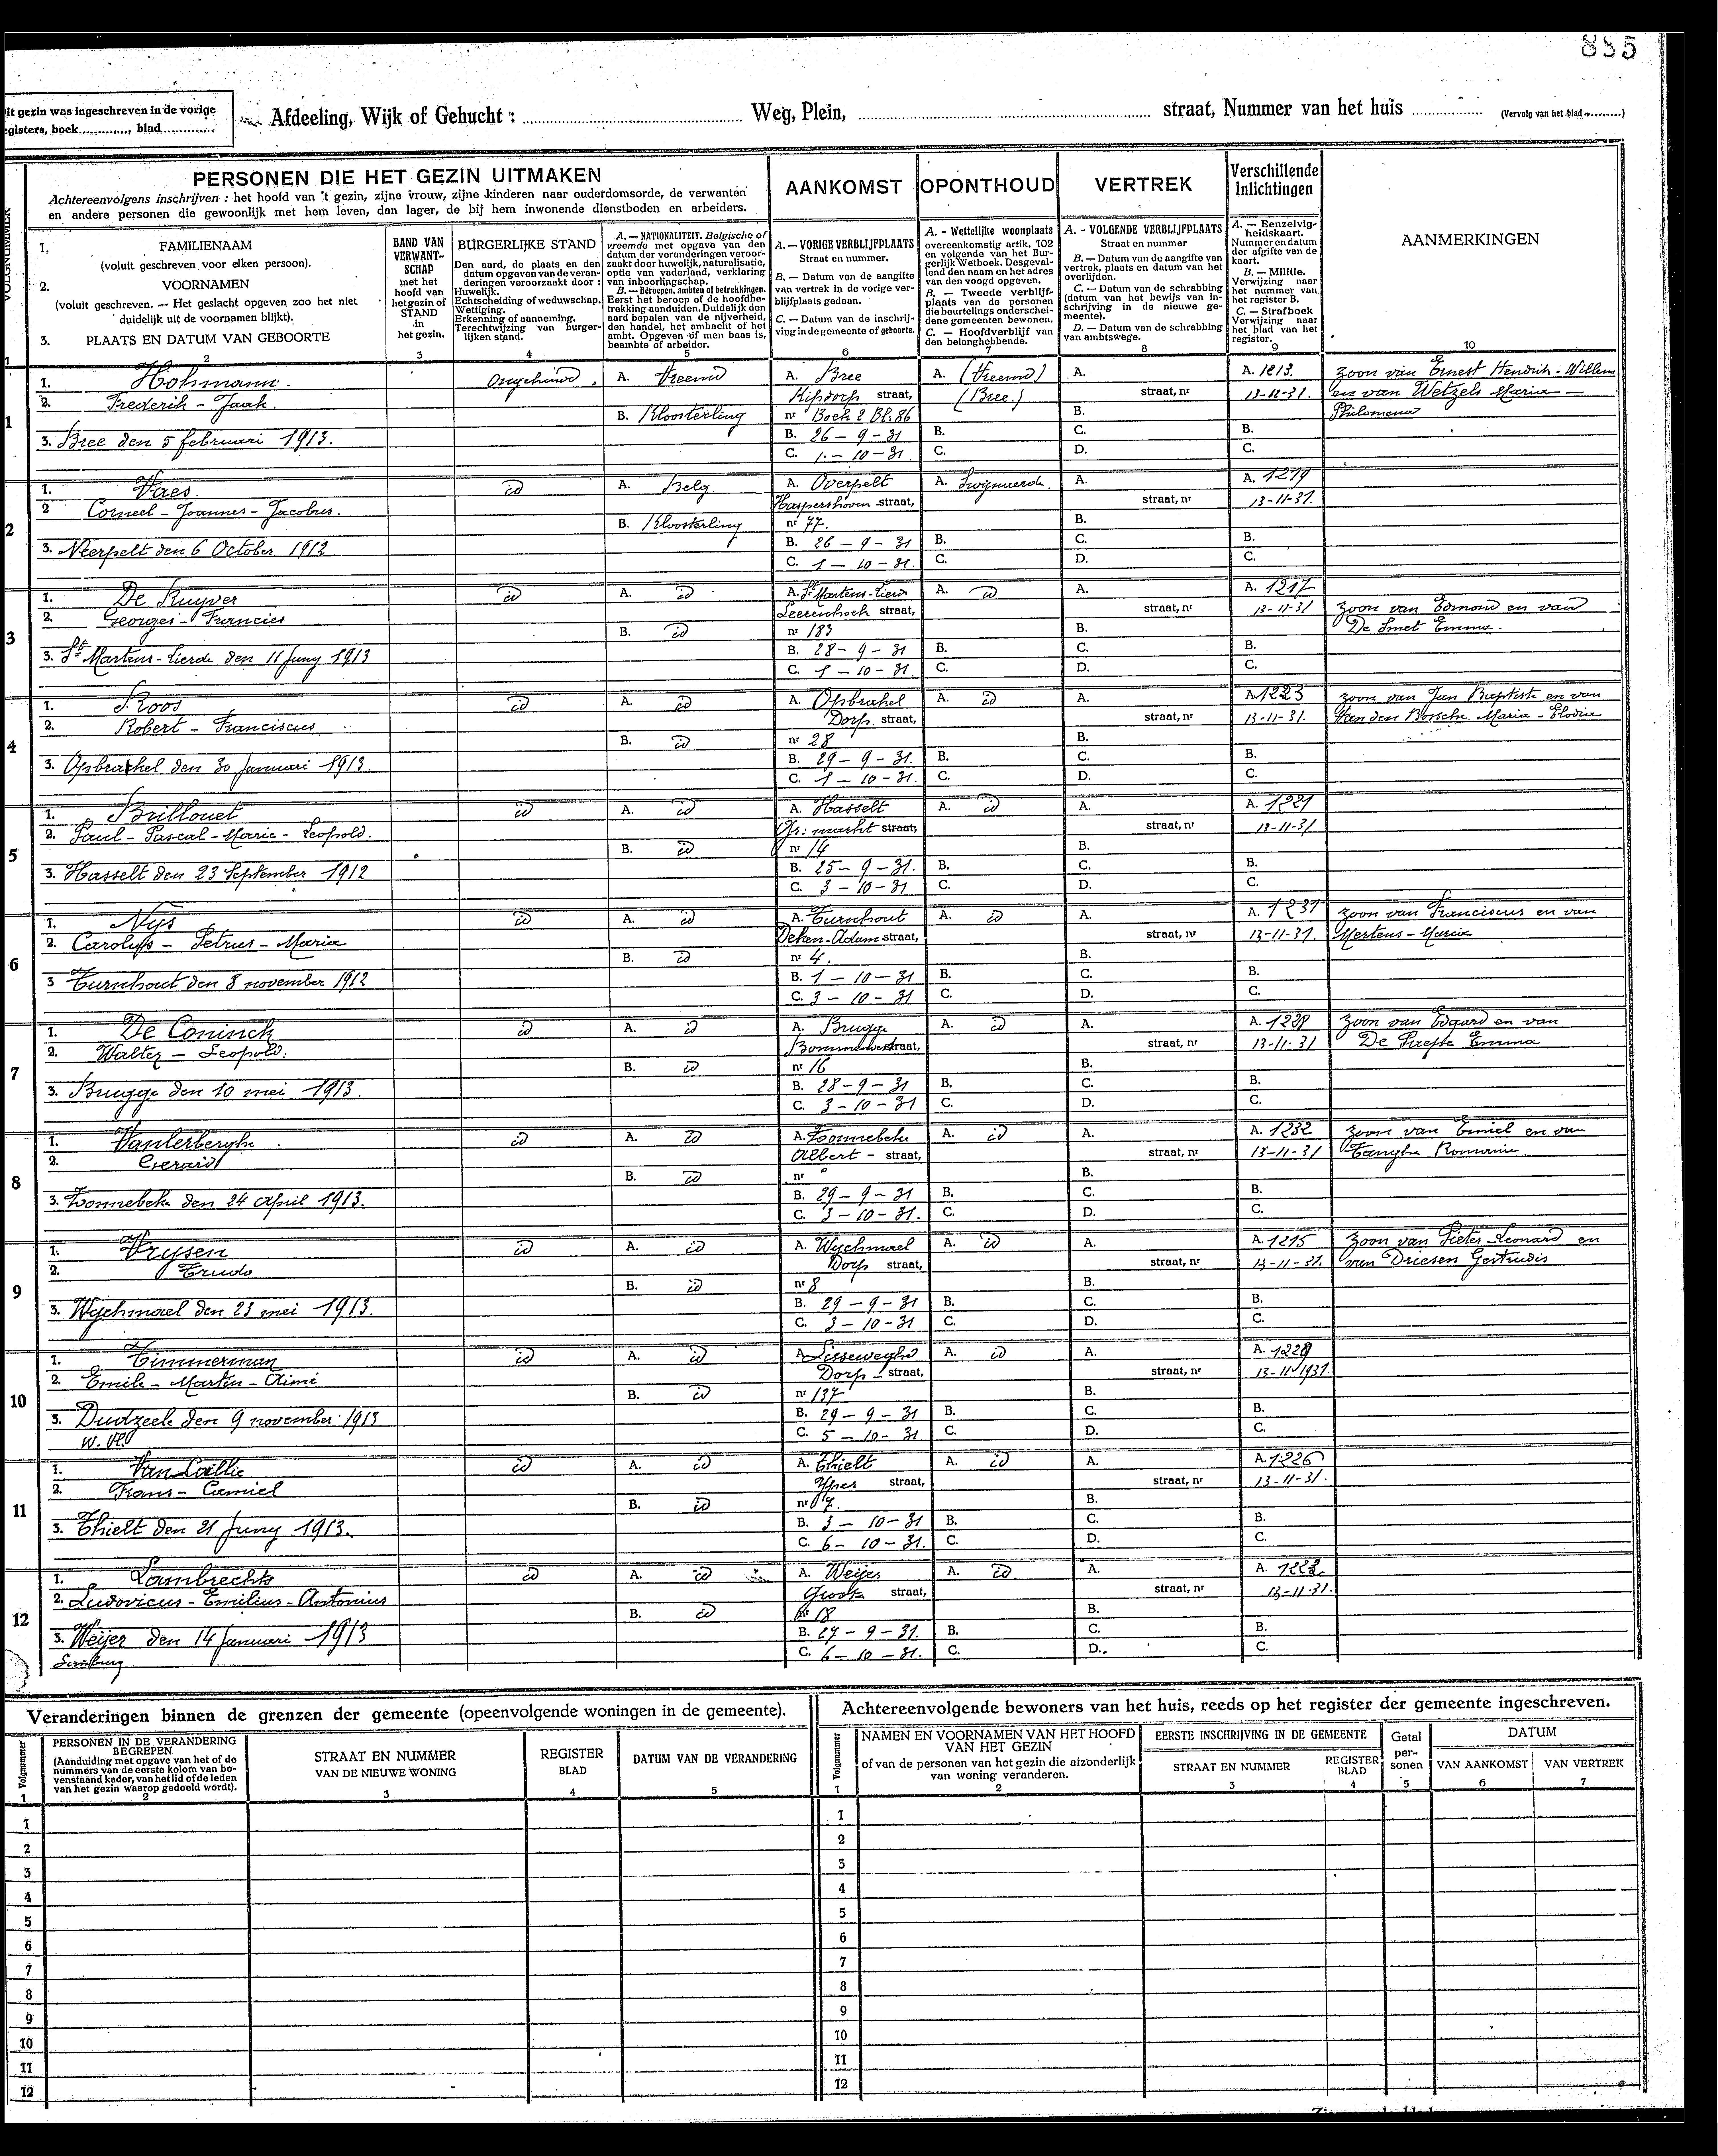 885
it gezin was ingeschreven in de vorige
gisters, boek............, blad..............
Afdeeling, Wijk of Gehucht : .......... Weg, Plein, .......... straat, Nummer van het huis .......... (Vervolg van het blad ..........)
PERSONEN DIE HET GEZIN UITMAKEN
Achtereenvolgens inschrijven : het hoofd van 't gezin, zijne vrouw, zijne kinderen naar ouderdomsorde, de verwanten
en andere personen die gewoonlijk met hem leven, dan lager, de bij hem inwonende dienstboden en arbeiders.
AANKOMST
OPONTHOUD
VERTREK
Verschillende
Inlichtingen
AANMERKINGEN
VOLGNUMMER
1. FAMILIENAAM
(voluit geschreven voor elken persoon).
2. VOORNAMEN
(voluit geschreven. — Het geslacht opgeven zoo het niet
duidelijk uit de voornamen blijkt).
3. PLAATS EN DATUM VAN GEBOORTE
BAND VAN
VERWANT-
SCHAP
met het
hoofd van
het gezin of
STAND
in
het gezin.
BURGERLIJKE STAND
Den aard, de plaats en den
datum opgeven van de veran-
deringen veroorzaakt door :
Huwelijk.
Echtscheiding of weduwschap.
Wettiging.
Erkenning of aanneming.
Terechtwijzing van burger-
lijken stand.
A. — NATIONALITEIT. Belgische of
vreemde met opgave van den
datum der veranderingen veroor-
zaakt door huwelijk, naturalisatie,
optie van vaderland, verklaring
van inboorlingschap.
B. — Beroepen, ambten of betrekkingen.
Eerst het beroep of de hoofdbe-
trekking aanduiden. Duidelijk den
aard bepalen van de nijverheid,
den handel, het ambacht of het
ambt. Opgeven of men baas is,
beambte of arbeider.
A. — VORIGE VERBLIJFPLAATS
Straat en nummer.
B. — Datum van de aangifte
van vertrek in de vorige ver-
blijfplaats gedaan.
C. — Datum van de inschrij-
ving in de gemeente of geboorte.
A. - Wettelijke woonplaats
overeenkomstig artik. 102
en volgende van het Bur-
gerlijk Wetboek. Desgeval-
lend den naam en het adres
van den voogd opgeven.
B. — Tweede verblijf-
plaats van de personen
die beurtelings onderschei-
dene gemeenten bewonen.
C. — Hoofdverblijf van
den belanghebbende.
A. - VOLGENDE VERBLIJFPLAATS
Straat en nummer
B. — Datum van de aangifte van
vertrek, plaats en datum van het
overlijden.
C. — Datum van de schrabbing
(datum van het bewijs van in-
schrijving in de nieuwe ge-
meente).
D. — Datum van de schrabbing
van ambtswege.
A. — Eenzelvig-
heidskaart.
Nummer en datum
der afgifte van de
kaart.
B. — Militie.
Verwijzing naar
het nummer van
het register B.
C. — Strafboek
Verwijzing naar
het blad van het
register.
1 2 3 4 5 6 7 8 9 10
1
1. Hohmann. Ongehuwd. A. Vreemd A. Bree A. (Vreemd) A. A. 1213. zoon van Ernest Hendrik - Willem
2. Frederik - Jaak. Kipdorp straat, (Bree.) straat, nr 13-11-31. en van Wetzels Maria -
B. Kloosterling nr Boek 2 Bl. 86 B. Philomena
3. Bree den 5 februari 1913. B. 26 - 9 - 31 B. C. B.
C. 1. - 10 - 31. C. D. C.
2
1. Vaes. id A. Belg A. Overpelt A. Swijnaerde. A. A. 1219
2 Corneel - Joannes - Jacobus. Haspershoven straat, straat, nr 13-11-31.
B. Kloosterling nr 77. B.
3. Neerpelt den 6 October 1912 B. 26 - 9 - 31 B. C. B.
C. 1 - 10 - 31. C. D. C.
3
1. De Ruyver id A. id A. St Martens-Lierd A. id A. A. 1217
2. Georges - Francies Leerenhoek straat, straat, nr 13-11-31 zoon van Edmond en van
B. id nr 183 B. De Smet Emma.
3. St Martens-Lierde den 11 Juny 1913 B. 28 - 9 - 31 B. C. B.
C. 1 - 10 - 31. C. D. C.
4
1. Roos id A. id A. Opbrakel A. id A. A. 1223 zoon van Jan Baptist en van
2. Robert - Franciscus Dorp. straat, straat, nr 13-11-31. Van den Bossche Maria - Elodia
B. id nr 28 B.
3. Opbrakel den 30 Januari 1913. B. 29 - 9 - 31. B. C. B.
C. 1 - 10 - 31. C. D. C.
5
1. Brillouet id A. id A. Hasselt A. id A. A. 1221
2. Paul - Pascal - Marie - Leopold. Gr: markt straat, straat, nr 13-11-31
B. id nr 14 B.
3. Hasselt den 23 September 1912 B. 25 - 9 - 31. B. C. B.
C. 3 - 10 - 31 C. D. C.
6
1. Nijs id A. id A. Turnhout A. id A. A. 1231 zoon van Franciscus en van
2. Carolus - Petrus - Maria Deken-Adams straat, straat, nr 13-11-31. Mertens - Maria
B. id nr 4. B.
3 Turnhout den 8 november 1912 B. 1 - 10 - 31 B. C. B.
C. 3 - 10 - 31 C. D. C.
7
1. De Coninck id A. id A. Brugge A. id A. A. 1238 zoon van Edgard en van
2. Walter - Leopold. straat, straat, nr 13-11-31 De Emma
B. id nr 16 B.
3. Brugge den 10 mei 1913. B. 28 - 9 - 31 B. C. B.
C. 3 - 10 - 31 C. D. C.
8
1. Vanlerberghe id A. id A. Zonnebeke A. id A. A. 1232 zoon van Emiel en van
2. Gerard Albert - straat, straat, nr 13-11-31 Tanghe Romanie.
B. id nr B.
3. Zonnebeke den 24 April 1913. B. 29 - 9 - 31 B. C. B.
C. 3 - 10 - 31. C. D. C.
9
1. Vrysen id A. id A. Wychmael A. id A. A. 1215 zoon van Pieter-Leonard en
2. Trudo Dorp straat, straat, nr 13-11-31. van Driesen Gertrudis
B. id nr 8 B.
3. Wychmael den 23 mei 1913. B. 29 - 9 - 31 B. C. B.
C. 3 - 10 - 31 C. D. C.
10
1. Timmerman id A. id A. Lisseweghe A. id A. A. 1228
2. Emile - Marten - Aimé Dorp - straat, straat, nr 13-11-1931.
B. id nr 137 B.
3. Dudzeele den 9 november 1913 B. 29 - 9 - 31 B. C. B.
W. Vl. C. 5 - 10 - 31 C. D. C.
11
1. Van Caillie id A. id A. Thielt A. id A. A. 1226
2. Frans - Camiel Yper straat, straat, nr 13-11-31.
B. id nr 7. B.
3. Thielt den 21 Juny 1913. B. 3 - 10 - 31 B. C. B.
C. 6 - 10 - 31. C. D. C.
12
1. Lambrechts id A. id A. Weijer A. id A. A. 1222
2. Ludovicus - Emilius - Antonius Groote straat, straat, nr 13-11-31.
B. id nr 18 B.
3. Weijer den 14 Januari 1913 B. 27 - 9 - 31. B. C. B.
Limburg C. 6 - 10 - 31. C. D. C.
Veranderingen binnen de grenzen der gemeente (opeenvolgende woningen in de gemeente).
Volgnummer
PERSONEN IN DE VERANDERING
BEGREPEN
(Aanduiding met opgave van het of de
nummers van de eerste kolom van bo-
venstaand kader, van het lid of de leden
van het gezin waarop gedoeld wordt).
STRAAT EN NUMMER
VAN DE NIEUWE WONING
REGISTER
BLAD
DATUM VAN DE VERANDERING
1 2 3 4 5
1
2
3
4
5
6
7
8
9
10
11
12
Achtereenvolgende bewoners van het huis, reeds op het register der gemeente ingeschreven.
Volgnummer
NAMEN EN VOORNAMEN VAN HET HOOFD
VAN HET GEZIN
of van de personen van het gezin die afzonderlijk
van woning veranderen.
EERSTE INSCHRIJVING IN DE GEMEENTE
STRAAT EN NUMMER
REGISTER
BLAD
Getal
per-
sonen
DATUM
VAN AANKOMST
VAN VERTREK
1 2 3 4 5 6 7
1
2
3
4
5
6
7
8
9
10
11
12